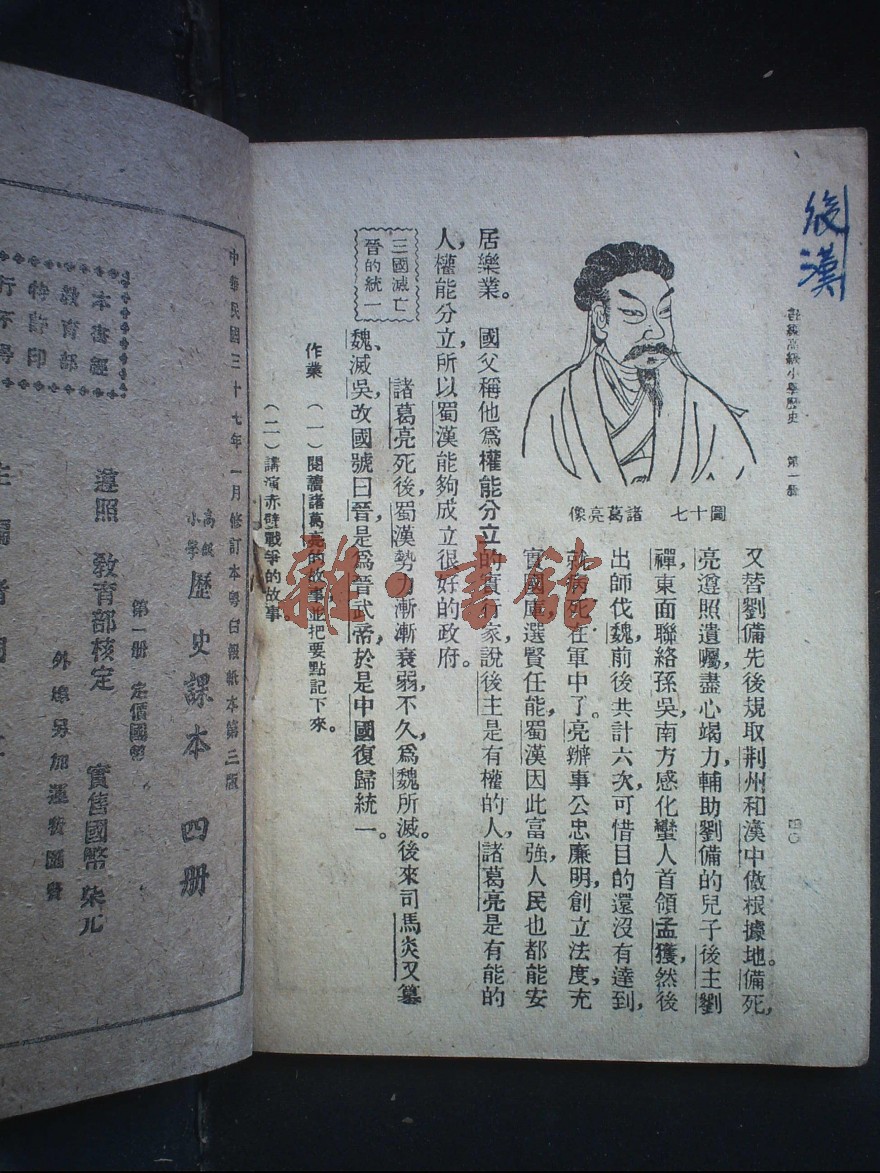 後漢
高級小學歷史　第一册
四〇
圖十七　諸葛亮像
又替劉備先後規取荆州和漢中做根據地。備死，
亮遵照遺囑，盡心竭力，輔助劉備的兒子後主劉
禪，東面聯絡孫吳，南方感化蠻人首領孟獲，然後
出師伐魏，前後共計六次，可惜目的還沒有達到，
就病死在軍中了。亮辦事公忠廉明，創立法度，充
實國庫，選賢任能，蜀漢因此富強，人民也都能安
居樂業。　國父稱他爲權能分立的實行家，說後主是有權的人，諸葛亮是有能的
人，權能分立，所以蜀漢能夠成立很好的政府。
三國滅亡
晉的統一
諸葛亮死後，蜀漢勢力漸漸衰弱，不久爲魏所滅。後來司馬炎又篡
魏、滅吳，改國號曰晉，是爲晉武帝，於是中國復歸統一。
作業　（一）閱讀諸葛亮的故事並把要點記下來。
（二）講演赤壁戰爭的故事。
雜·書館
中華民國三十七年一月修訂本粤白報紙本第三版
高級
小學
歷史課本　四册
第一册　定價國幣
實售國幣柒元
外埠另加運費匯費
遵照　教育部核定
本書經
教育部
特許印
行不得
主編者